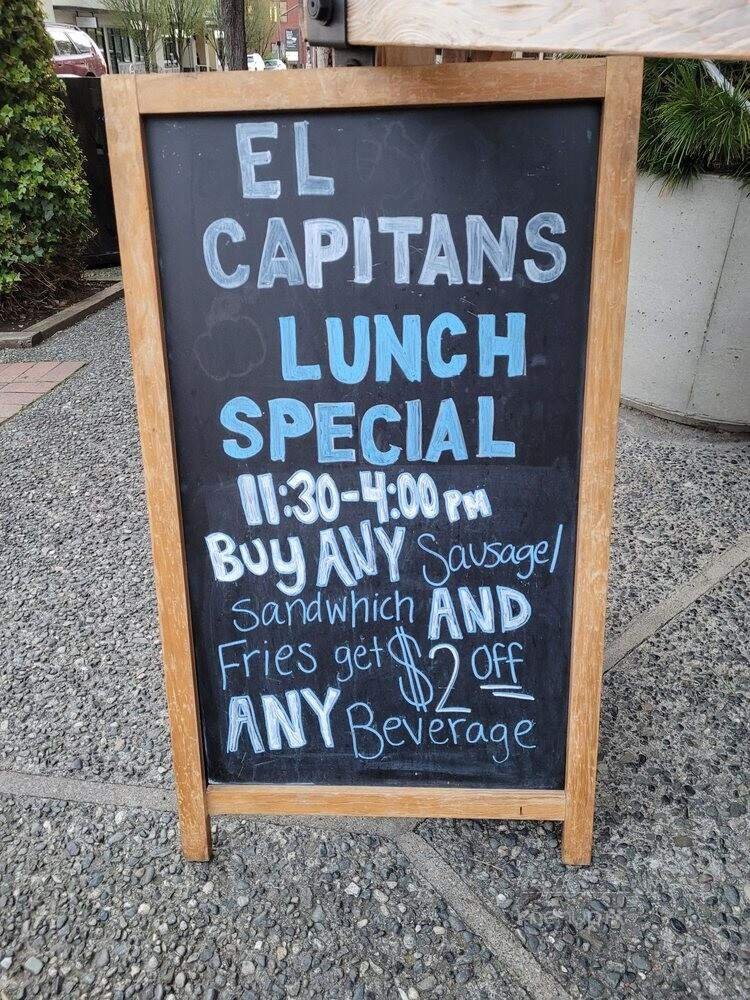 EL
CAPITANS
LUNCH
SPECIAL
11:30-4:00 PM
BUY ANY Sausage/
Sandwhich AND
Fries get $2 Off
ANY Beverage